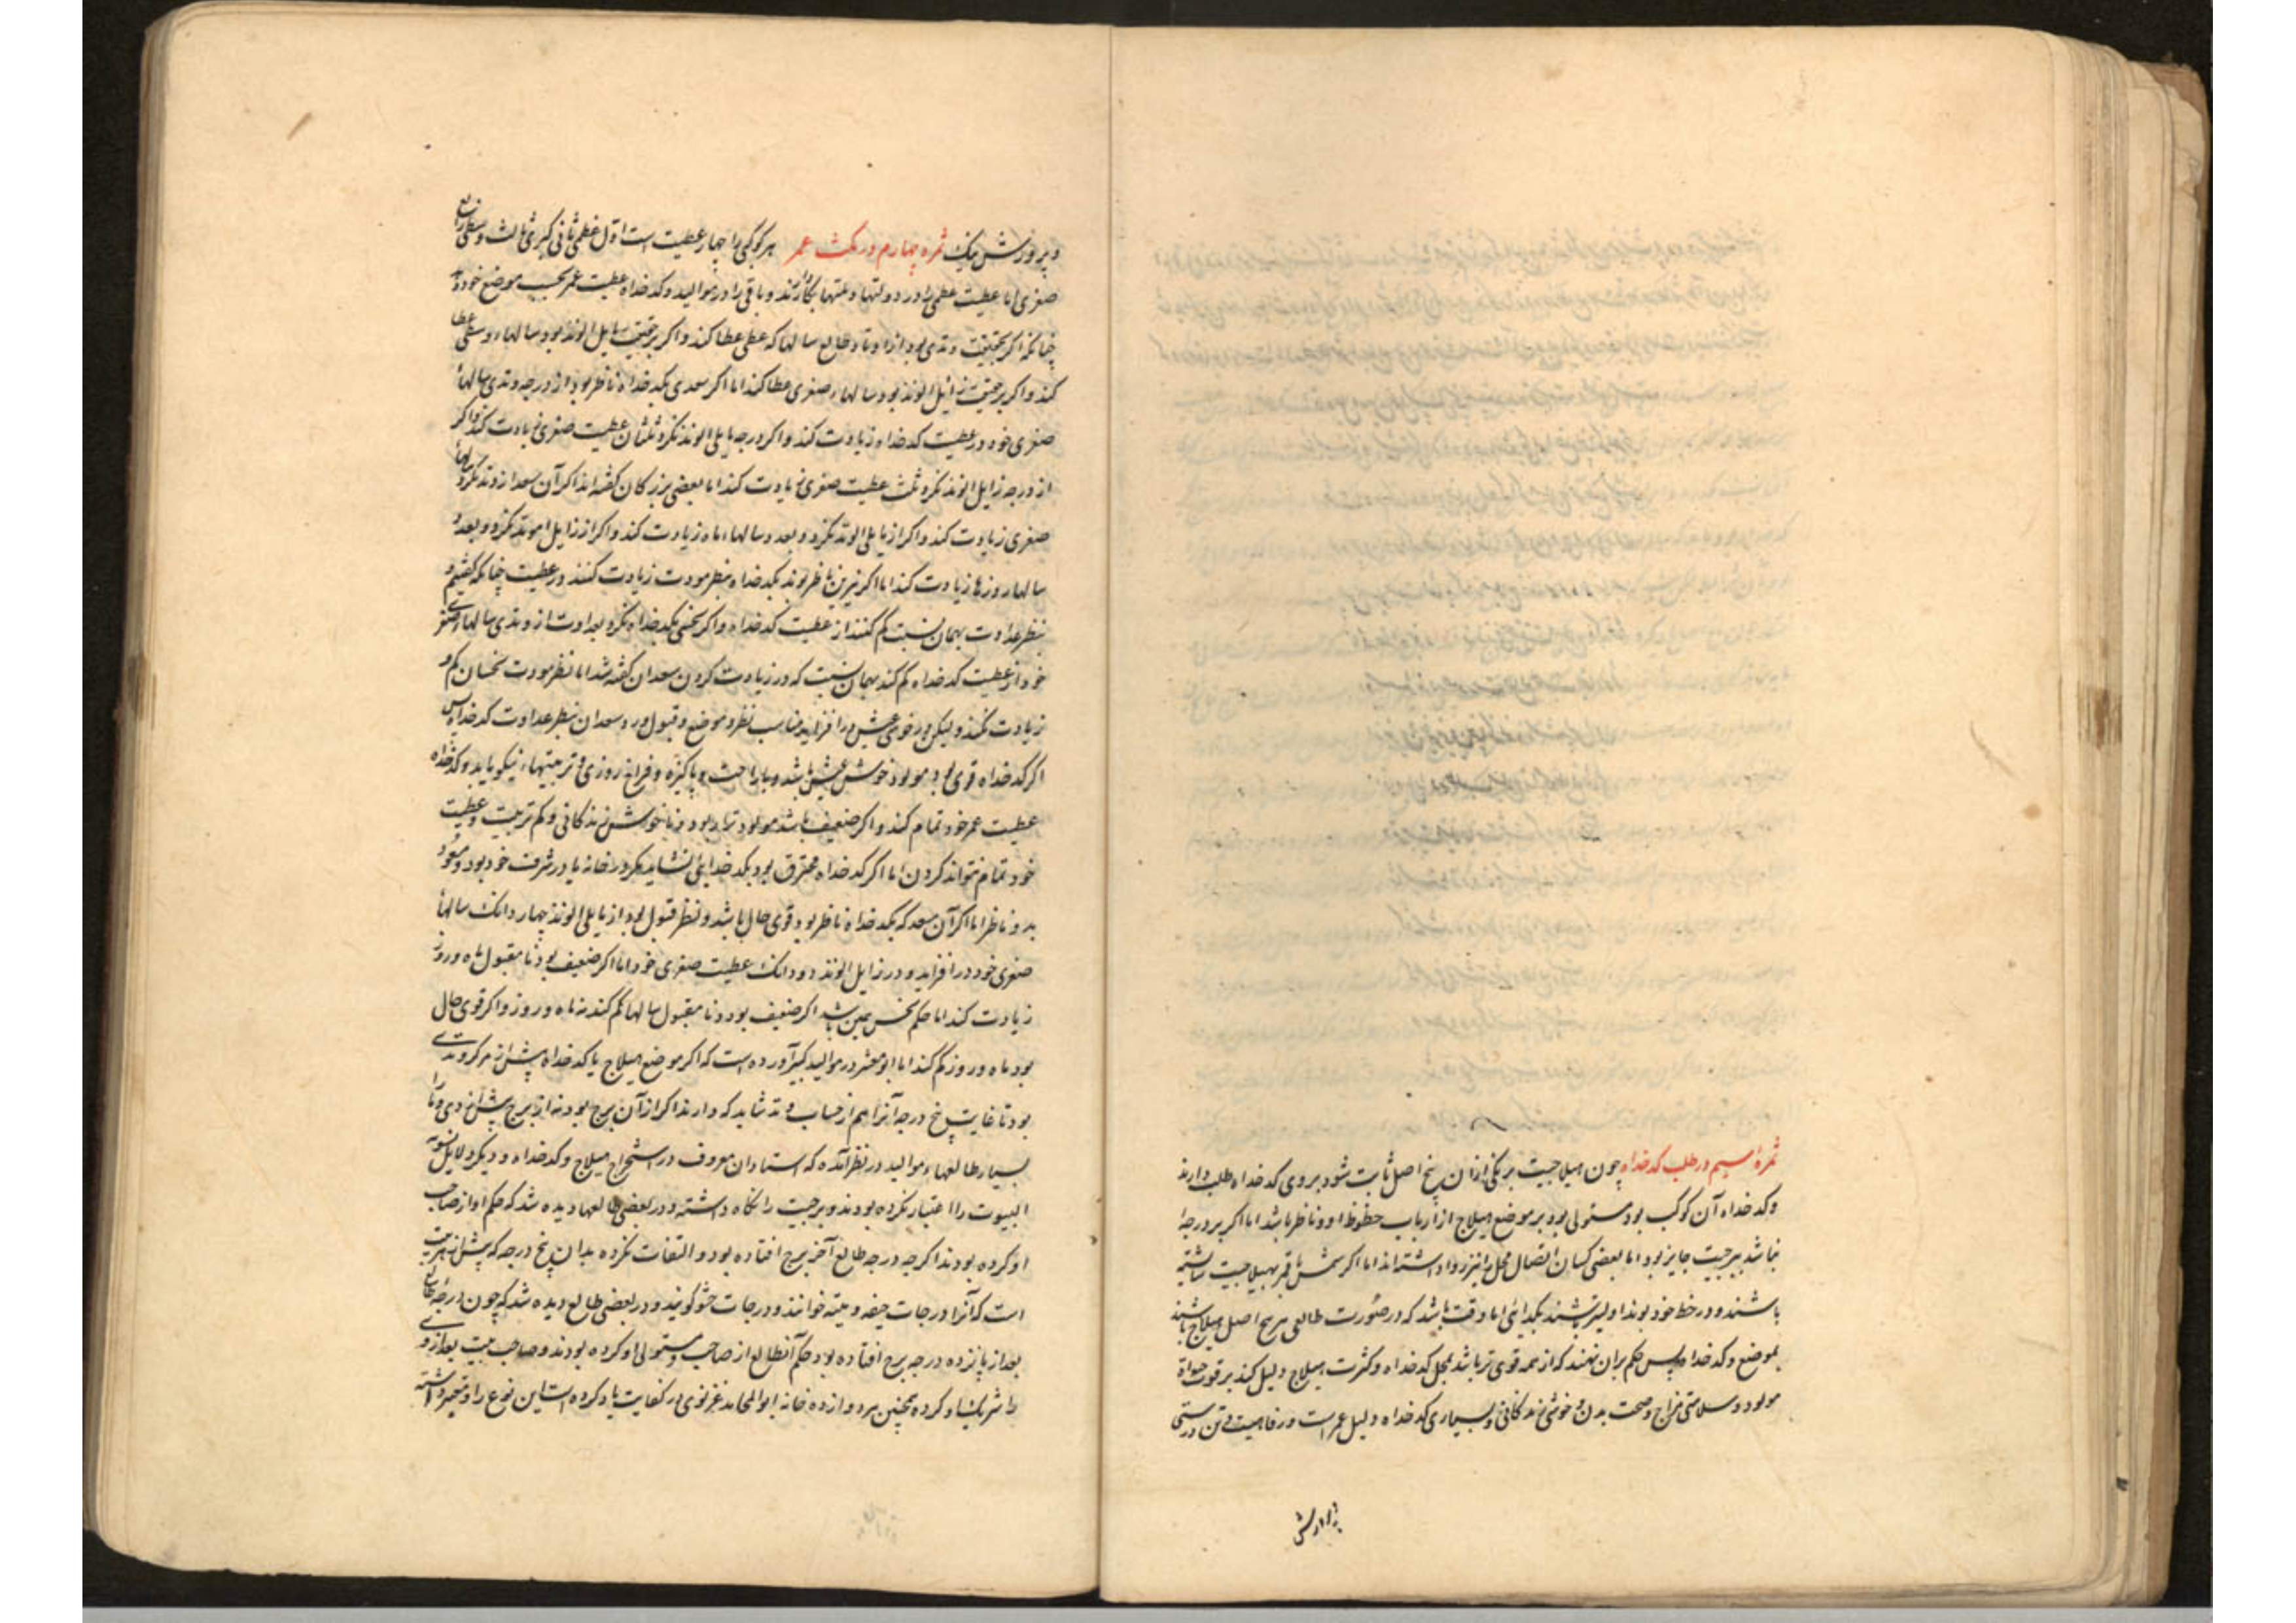 ثمره سیم در طلب کدخداه چون هیلاجیت بر یکی ازان پنج اصل ثابت شود بروی کدخداه طلب دارند
وکدخداه آن کوکب بود مستولی بود بر موضع هیلاج از ارباب حظوظ او وناظر باشد اما اکر بر درجها
نباشد ببرجیت جایز بود اما بعضی کسان اتصال محل را نیز روا داشته اند اما اکر شمس یا قمر بهیلاجیت شایسته
باشند ودر حظ خود بوند اولیتر باشند بکدخدائی اما وقت باشد که در صورت طالعی هر پنج اصل هیلاج باشند
بموضع وکدخداه پس حکم بران نهند که از همه قوی تر باشد بمحل کدخداه وکثرت هیلاج دلیل کند بر قوت حیوة
مولود وسلامتی مزاج وصحت بدن وخوشی زندکانی وبسیاری کدخداه دلیل عمر است ورفاهیت وتن درستی
وپرورش نیک ثمره چهارم در کمیت عمر هر کوکبی را چهار عطیت است اول عظمی ثانی کبری ثالث وسطی رابع
صغری اما عطیت عظمی را در دولتها وملتها بکار دارند وباقی را در موالید وکدخداه عطیت عمر بحسب موضع خود دهد
چنانکه اکر بحقیقت وتدی بود از اوتاد طالع سالهاء عطا کند واکر بر حقیقت مایل الوتد بود سالهاء وسطی عطا
کند واکر بر حقیقت زایل الوتد بود سالهاء صغری عطا کند اما اکر سعدی بکدخداه ناظر بود از درجه وتدی سالهاء
صغری خود در عطیت کدخداه زیادت کند واکر درجه مایل الوتد نکرد ثلثان عطیت صغری زیادت کند واکر
از درجه زایل الوتد نکرد ثلث عطیت صغری زیادت کند اما بعضی بزرکان کفته اند اکر آن سعد از وتد نکرد سالهاء
صغری زیادت کند واکر از مایل الوتد نکرد وبعدد سالها ماه زیادت کند واکر از زایل الوتد نکرد وبعدد
سالها روزها زیادت کند اما اکر نیرین ناظر بوند بکدخداه بنظر مودت زیادت کنند در عطیت چنانکه کفتیم و
بنظر عداوت بهمان نسبت کم کنند از عطیت کدخداه واکر نحسی بکدخداه نکرد بعداوت از وتدی سالهاء صغری
خود از عطیت کدخداه کم کند بهمان نسبت که در زیادت کردن سعدان کفته شد اما نظر مودت نحسان کم و
زیادت نکند ولیکن در خوشی عیش در افزاید مناسب نظر وموضع وقبول ورد وسعدان بنظر عداوت کدخداه پس
اکر کدخداه قوی بود مولود خوش عیش باشد وبا راحت وپاکیزه وفراخ روزی وتربیتهاء نیکو یابد وکدخداه
عطیت عمر خود تمام کند واکر ضعیف باشد مولود بود وناخوش زندکانی وکم تربیت وعطیت
خود تمام نتواند کردن اما اکر کدخداه محترق بود بکدخدایی نشاید مکر در خانه یا در شرف خود بود وسعود
بدو ناظر اما اکر آن سعد که بکدخداه ناظر بود قوی حال باشد ونظر قبول بود از مایل الوتد چهار دانک سالهاء
صغری خود در افزاید ودر زایل الوتد دو دانک عطیت صغری خود اما اکر ضعیف بود ونا مقبول ماه وروز
زیادت کند اما حکم نحس همین باشد اکر ضعیف بود ونا مقبول سالها کم کند نه ماه وروز واکر قوی حال
بود ماه وروز کم کند اما ابومعشر در موالید کبیر آورده است که اکر موضع هیلاج یا کدخداه پیش از مرکز وتدی
بود تا غایت پنج درجه آنرا هم از حساب وتد شاید که دارند اکر از آن برج بود نه از برج پیش از وی وما را
بسیار طالعهاء موالید در نظر آمده که استادان معروف در استخراج هیلاج وکدخداه ودیکر دلایل تسویة
البیوت را اعتبار نکرده بودند وبرجیت را نکاه داشته ودر بعضی طالعها دیده شد که حکم او از صاحب
او کرده بودند اکرچه درجه طالع آخر برج افتاده بود والتفات نکرده بدان پنج درجه که پیش از هر بیت
است که آنرا درجات جیفه ومیته خوانند ودرجات حشو کویند ودر بعضی طالع دیده شد که چون درجه طالع
بعد از پانزده درجه برج افتاده بود حکم آن طالع از صاحب ومستولی او کرده بودند وصاحب بیت بعد از وی
را شریک او کرده همچنین بر دوازده خانه ابوالمحامد غزنوی در کفایت یاد کرده است این نوع را ومعتبر داشته